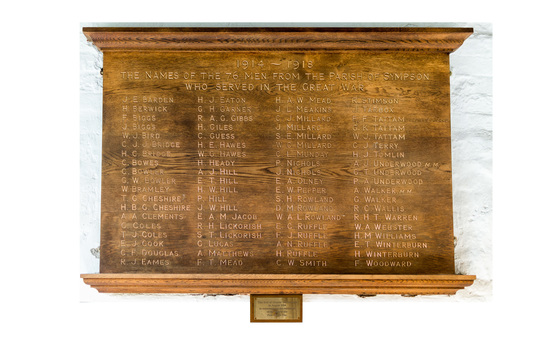 1914 – 1918
THE NAMES OF THE 76 MEN FROM THE PARISH OF SIMPSON
WHO SERVED IN THE GREAT WAR
J. E. BARDEN H. J. EATON H. A. W. MEAD SIMSON
H. BERWICK G. H. GARNER J. L. MEAKINS COOK
F. BIGGS R. A. G. GIBBS C. J. MILLARD F. TATTAM
J. BIGGS H. GILES J. MILLARD G. H. TATTAM
W. J. BIRD C. GUESS S. E. MILLARD W. J. TATTAM
C. J. J. BRIDGE H. E. HAWES MILLARD C. J. TERRY
H. C. BRIDGE W. C. HAWES MUNDAY H. J. TOMLIN
C. BOWES H. HEADY P. NICHOLLS A. J. UNDERWOOD M.M.
G. BOWLER A. J. HILL G. E. UNDERWOOD
G. W. BOWLER E. T. HILL E. A. OLNEY R. A. UNDERWOOD
W. BRAMLEY H. W. HILL E. W. PETERS A. WALKER M.M.
T. G. CHESHIRE P. HILL S. H. ROWLAND G. WALKER
H. B. G. CHESHIRE J. W. HILL D. M. ROWLAND R. C. WALLIS
A. A. CLEMENTS E. A. M. JACOB W. A. C. ROWLAND R. H. T. WARREN
C. COLES R. H. LICKORISH E. C. RUFFLE W. A. WEBSTER
T. J. COLES S. T. LICKORISH F. J. RUFFLE H. M. WILLIAMS
E. J. COOK G. LUCAS A. N. RUFFLE E. T. WINTERBURN
G. F. DOUGLAS A. MATTHEWS H. RUFFLE H. WINTERBURN
R. J. EAMES F. T. MEAD C. W. SMITH F. WOODWARD